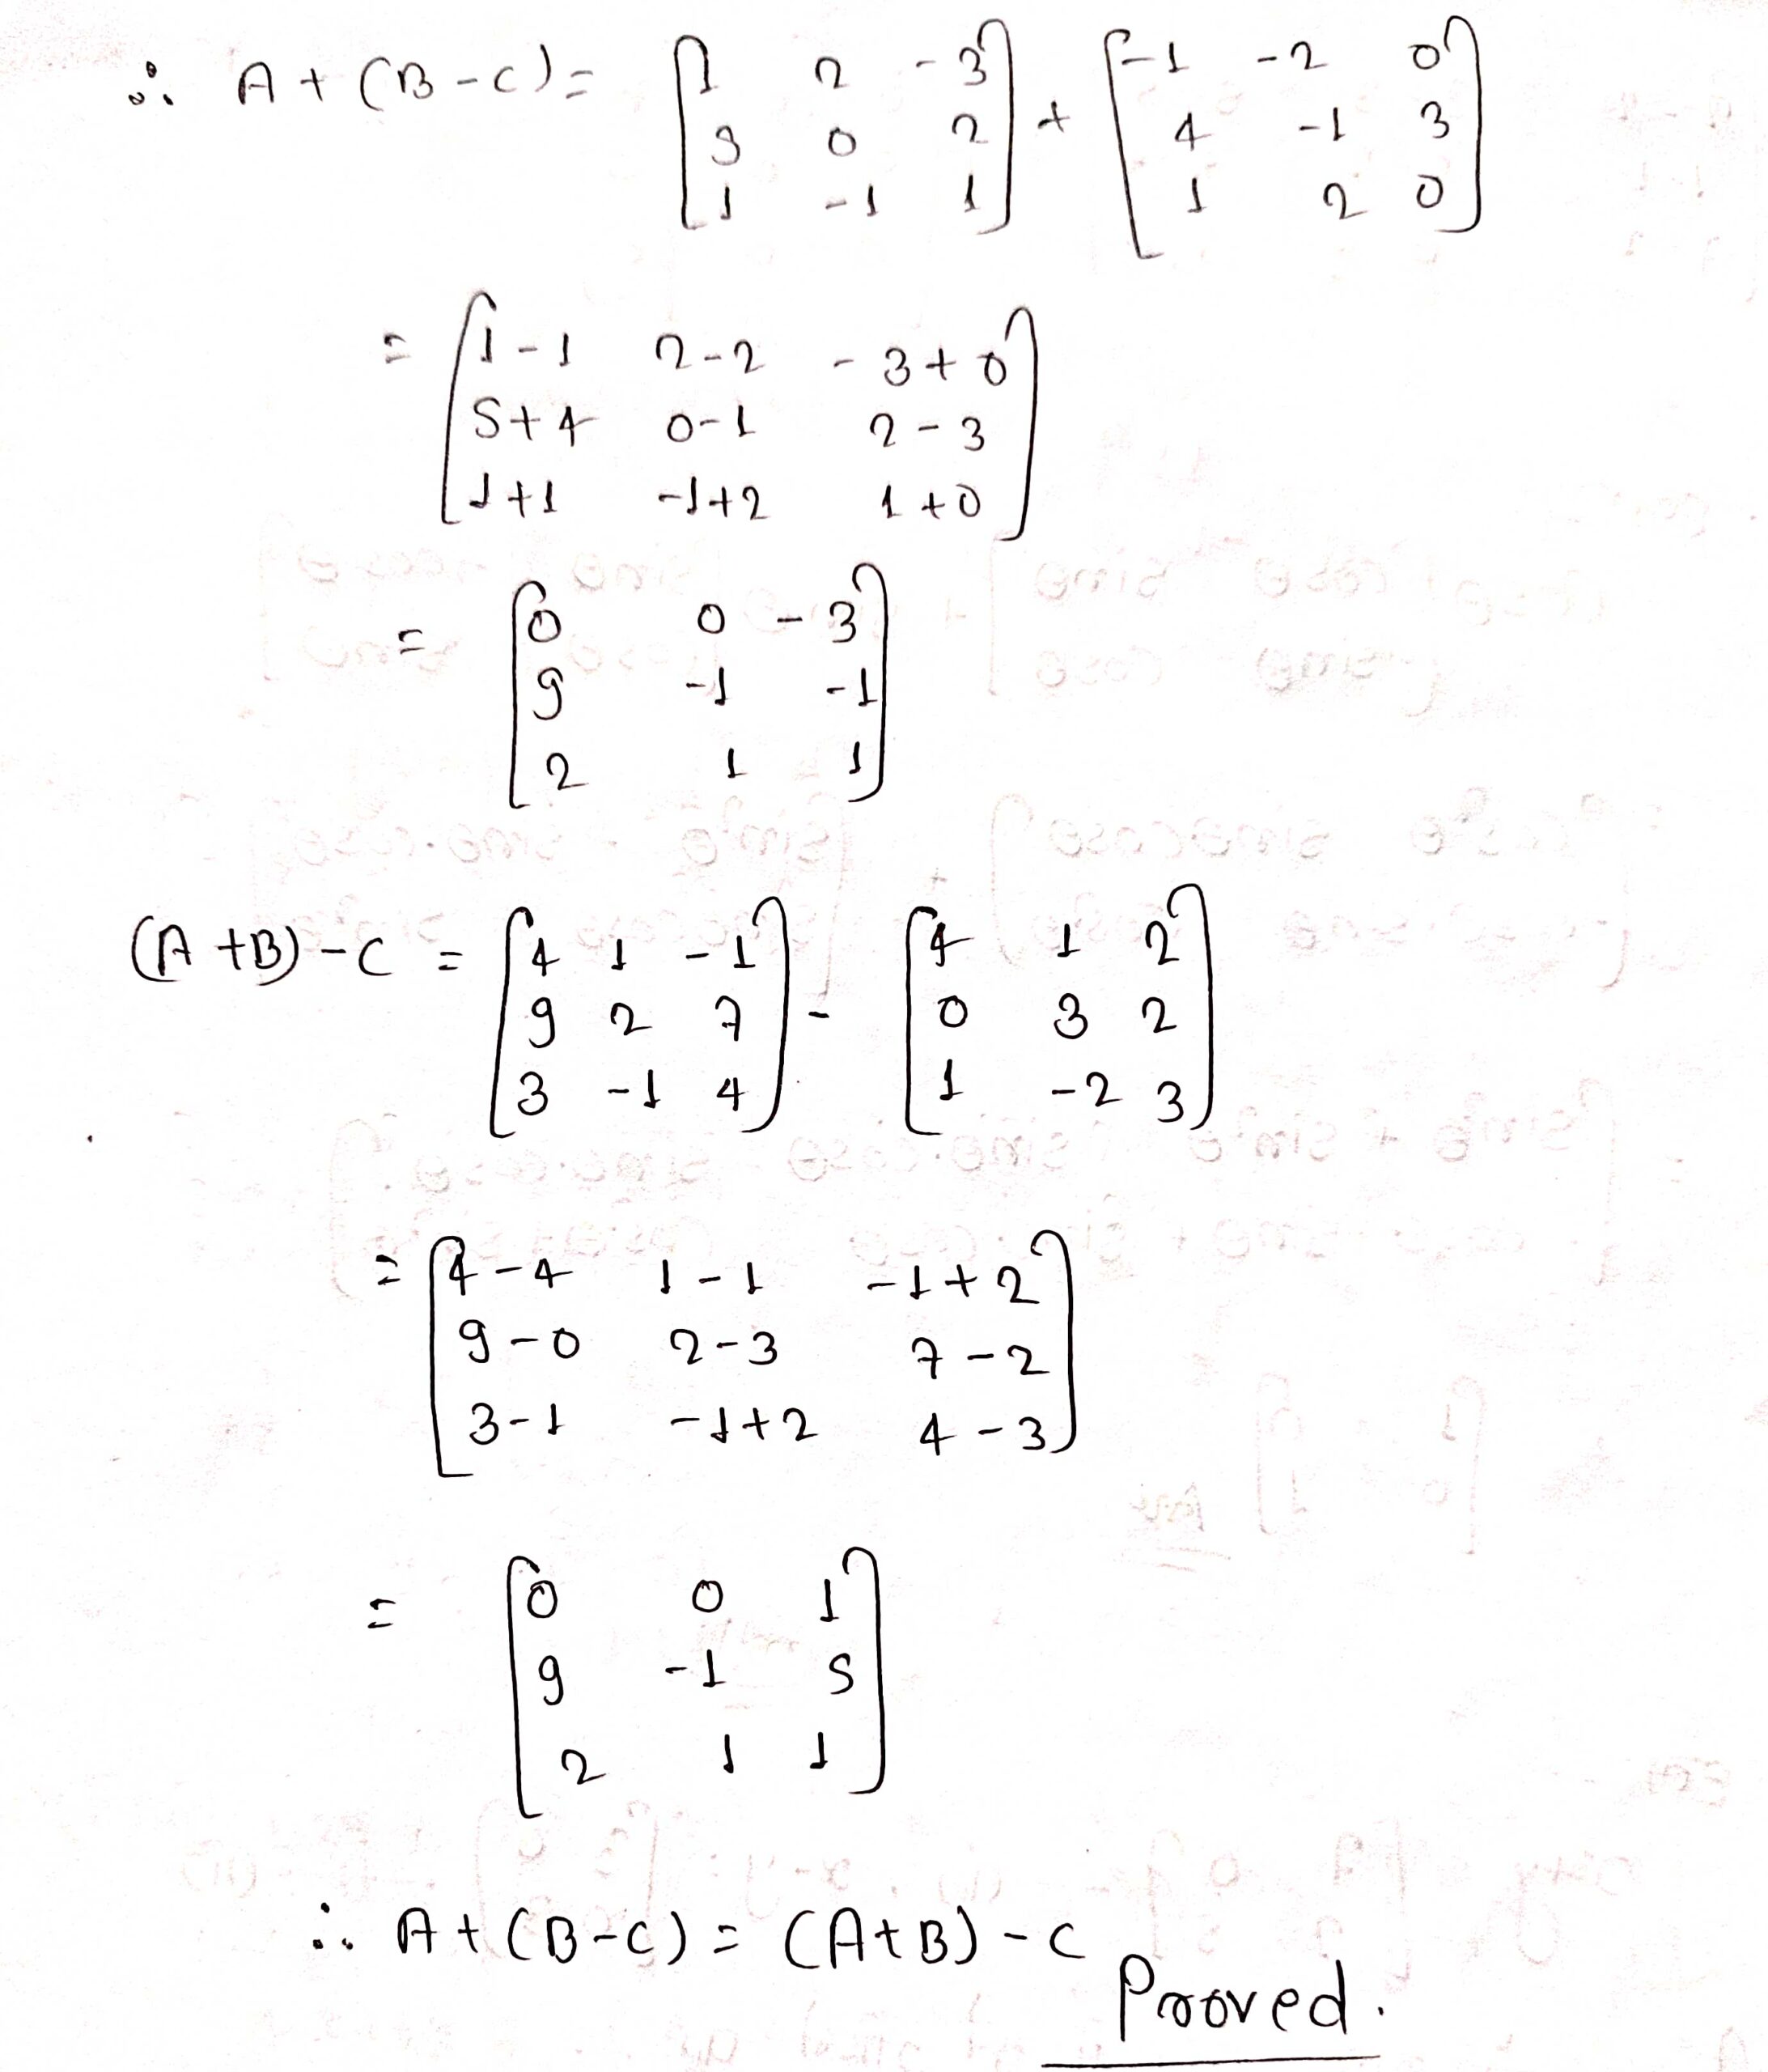 ∴ A + (B - C) = [1 2 -3] + [-1 -2 0]
[9 0 2] [4 -1 3]
[1 -1 1] [1 2 0]
= [1-1 2-2 -3+0]
[5+4 0-1 2-3]
[1+1 -1+2 1+0]
= [0 0 -3]
[9 -1 -1]
[2 1 1]
(A+B)-C = [4 1 -1] - [4 1 2]
[9 2 7] [0 3 2]
[3 -1 4] [1 -2 3]
= [4-4 1-1 -1+2]
[9-0 2-3 7-2]
[3-1 -1+2 4-3]
= [0 0 1]
[9 -1 5]
[2 1 1]
∴ A+(B-C) = (A+B)-C
Proved.